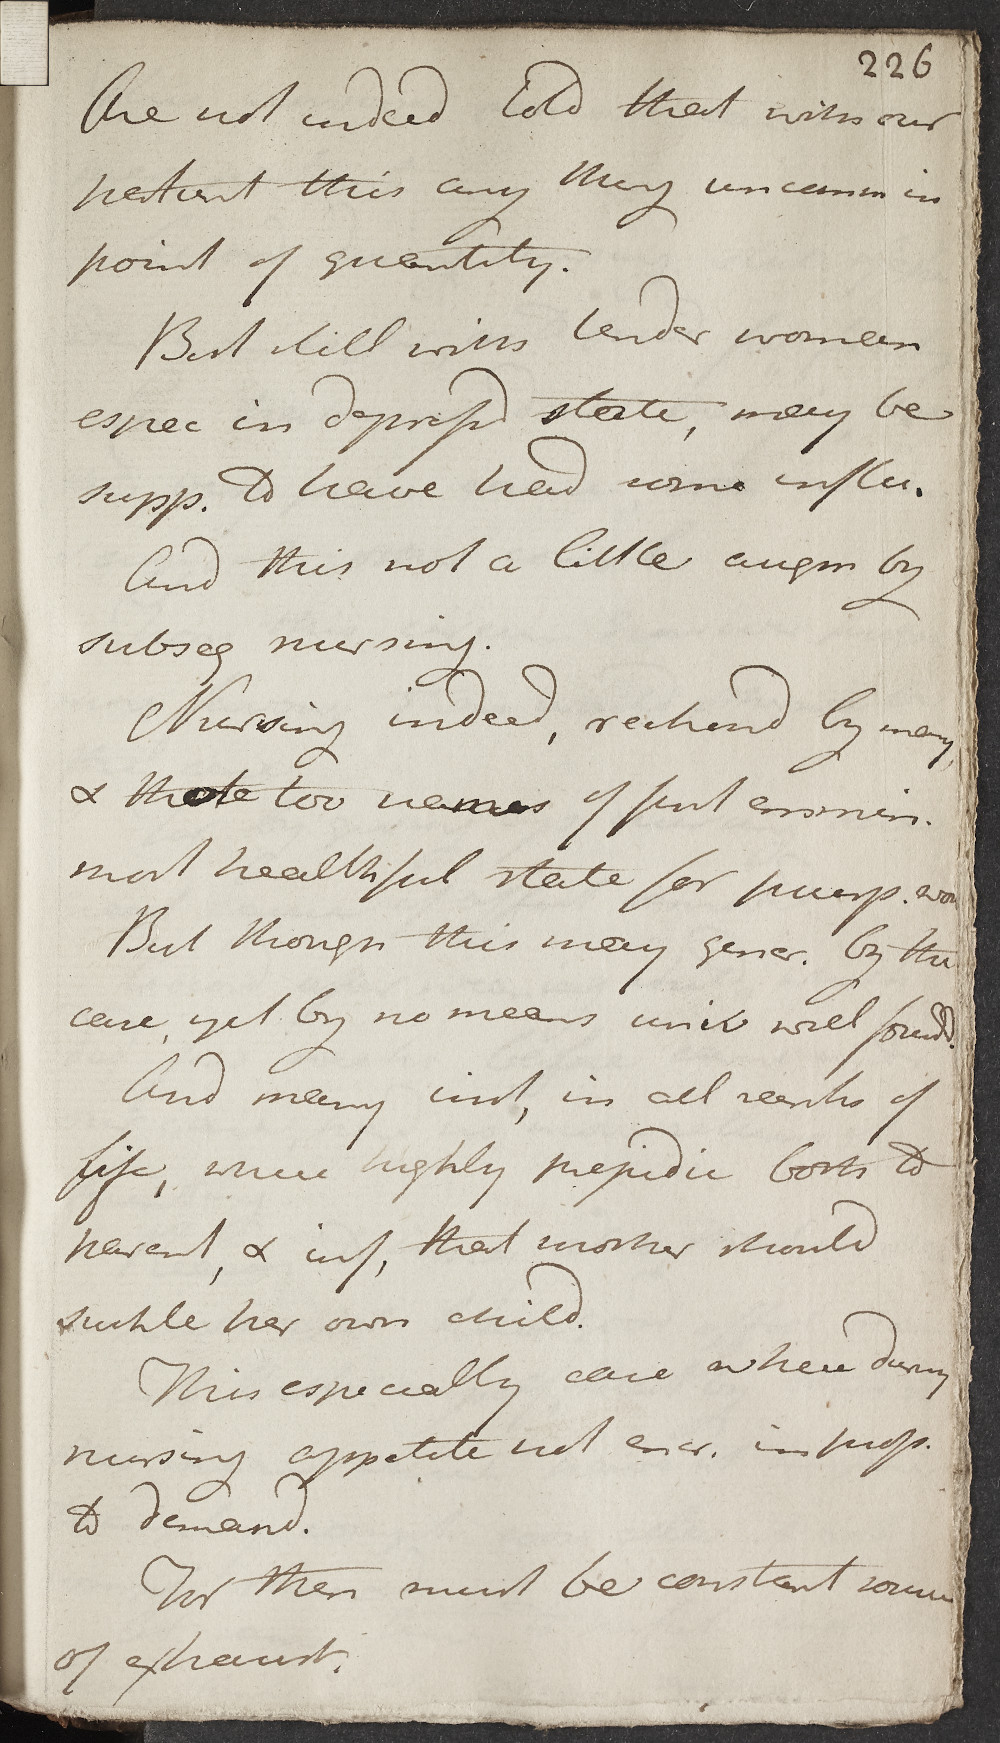 226
Are not indeed told that with our
patient this any thing uncomm in
point of quantity.
But still with tender women
espec in depress'd state, may be
supp. to have had some influ.
And this not a little augm by
subseq nursing.
Nursing indeed, reckond by many,
& those too names of first eminen.
most healthful state for puerp. wom
But though this may gener. by the
case, yet by no means univ well found.
And many inst, in all ranks of
life, where highly prejudic both to
parent, & inf, that mother should
suckle her own child.
This especially case when during
nursing appetite not encr. in prop.
to demand.
For then must be constant source
of exhaust.